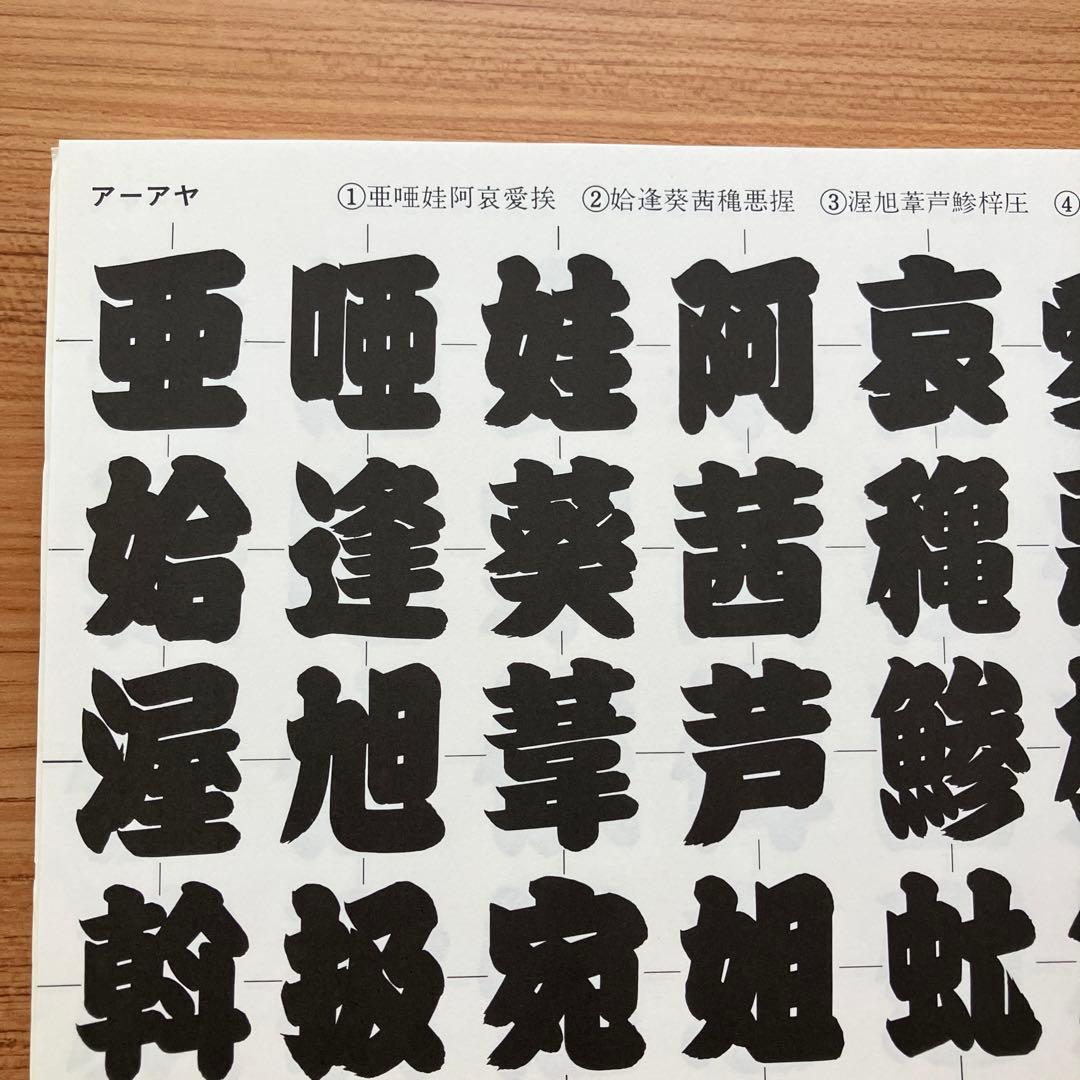 アーアヤ ①亜唖娃阿哀愛挨 ②姶逢葵茜穐悪握 ③渥旭葦芦鯵梓圧 ④
亜唖娃阿哀
姶逢葵茜穐
渥旭葦芦鯵
斡扱宛姐虻